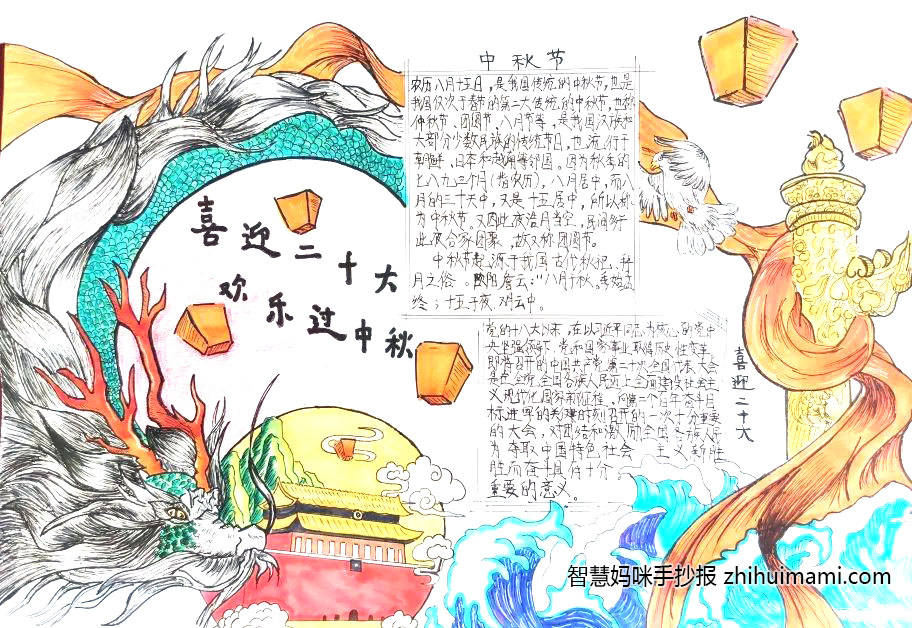 喜迎二十大
欢乐过中秋
中秋节
农历八月十五日，是我国传统的中秋节，也是
我国仅次于春节的第二大传统的中秋节，也称
仲秋节、团圆节、八月节等，是我国汉族和
大部分少数民族的传统节日，也流行于
朝鲜、日本和越南等邻国。因为秋季的
七八九三个月（指农历），八月居中，而八
月的三十天中，又是十五居中，所以称
为中秋节。又因此夜浩月当空，民间多行
此夜合家团聚，故又称团圆节。
中秋节起源于我国古代秋祀、拜
月之俗。欧阳詹云："八月于秋，季始孟
终；十五于夜，又云中。
党的十八大以来，在以习近平同志为核心的党中
央坚强领导下，党和国家事业取得历史性变革
即将召开的中国共产党第二十次全国代表大会
是在全党全国各族人民迈上全面建设社会主
义现代化国家新征程、向第二个百年奋斗目
标进军的关键时刻召开的一次十分重要
的大会，对团结和激励全国各族人民
为夺取中国特色社会主义新胜
胜而奋斗具有十分
重要的意义。
喜迎二十大
智慧妈咪手抄报 zhihuimami.com